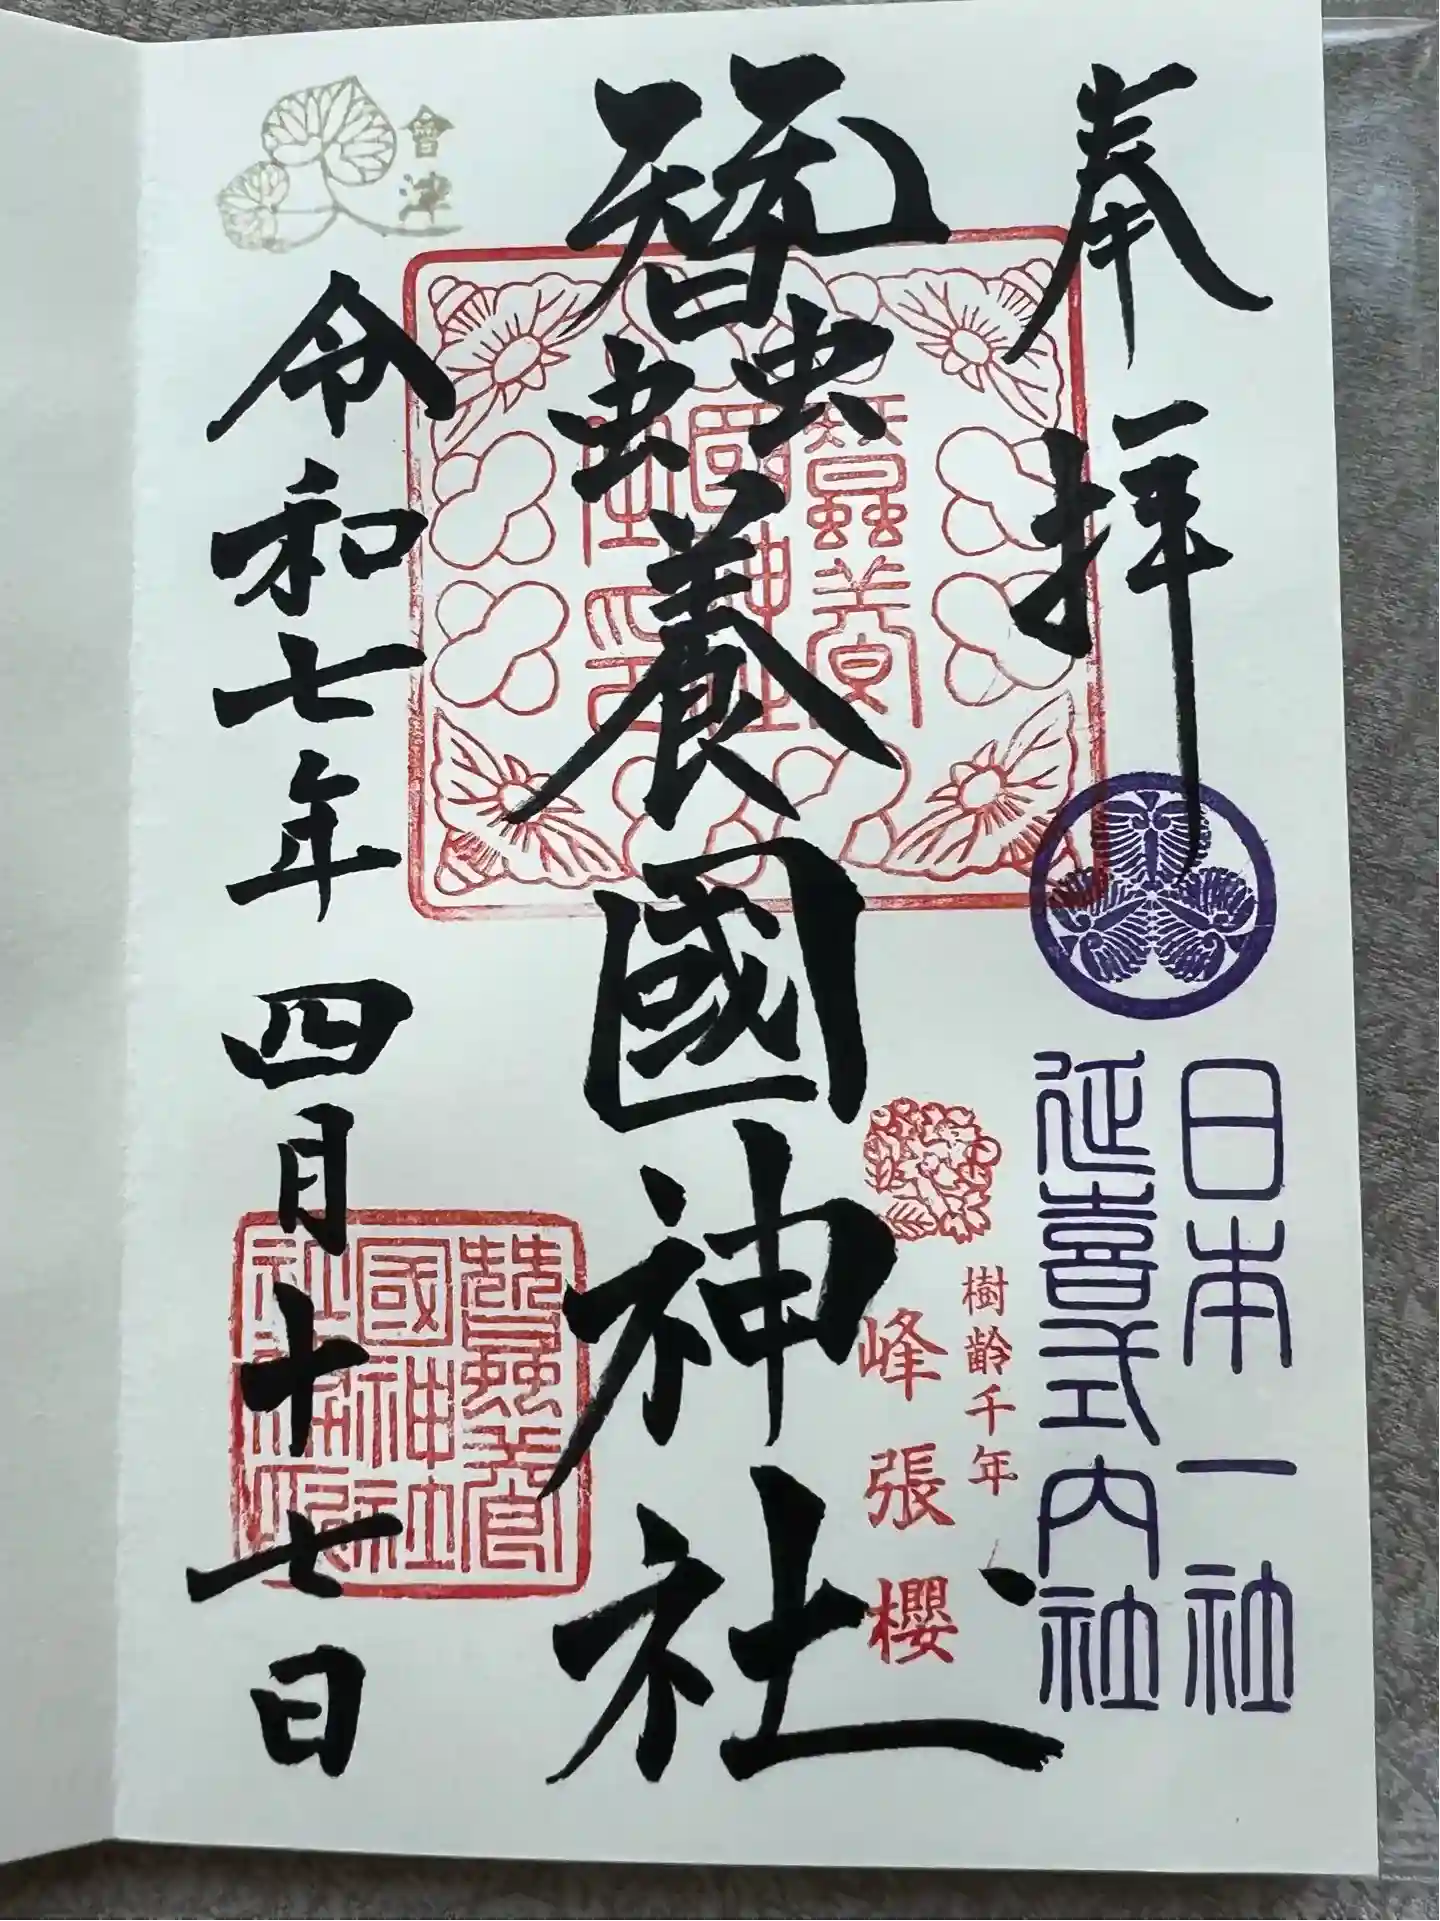 奉拝
日本一社
延喜式内社
樹齢千年
峰張櫻
蠶養國神社
蠶養國神社印
蠶養國神社
會津
令和七年四月十七日